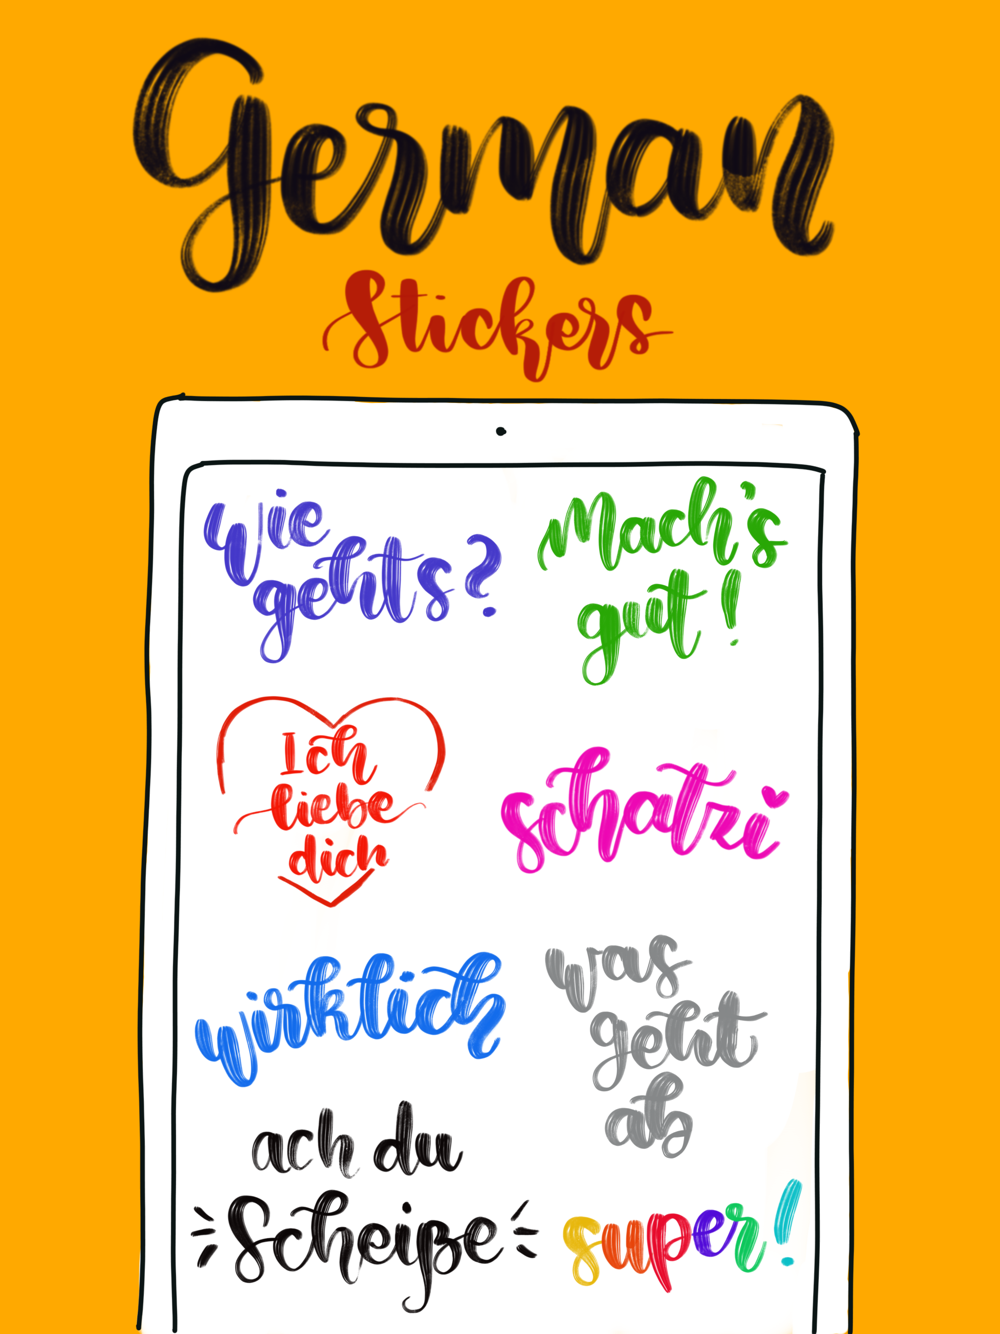 German
Stickers
wie
gehts?
Mach's
gut!
Ich
liebe
dich
schatzi
wirklich
was
geht
ab
ach du
Scheiße
super!